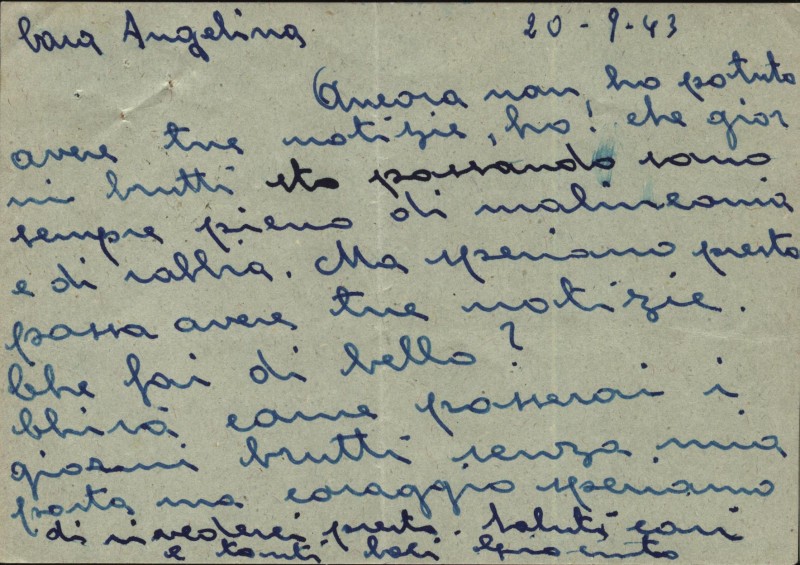 Cara Angelina 20-9-43
Ancora non ho potuto
avere tue notizie, ho! che gior
ni brutti sto passando sono
sempre pieno di malinconia
e di rabbia. Ma speriamo presto
possa avere tue notizie.
Che fai di bello?
Chissà come passerai i
giorni brutti senza mia
posta ma coraggio speriamo
di rivederci presto. Saluti cari
e tanti baci